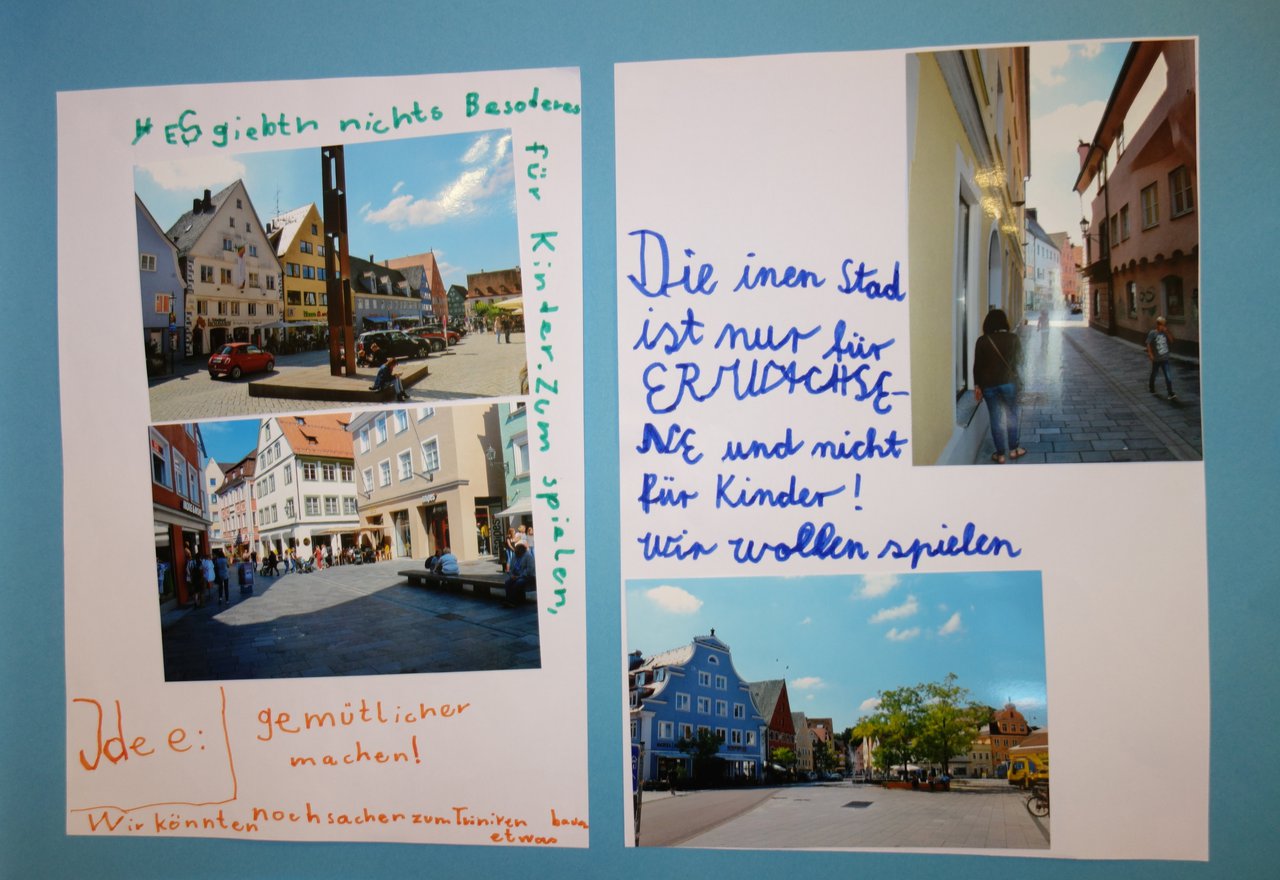 ES giebtn nichts Besoderes
für Kinder. Zum spialen,
Idee:
gemütlicher
machen!
Wir könnten noch sacher zum Triniren baun
etwas
Die inen Stad
ist nur für
ERWACHSE-
NE und nicht
für Kinder!
wir wollen spielen